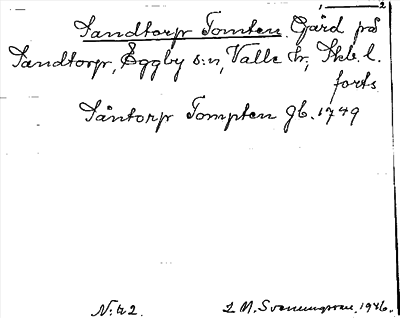 1 — 2
Sandtorp Tomten. Gård på
Sandtorp, Eggby s:n, Valle hr, Skb. l.
forts.
Såntorp Tompten Jb. 1749
N:42. L M. Svenungsson, 1946.